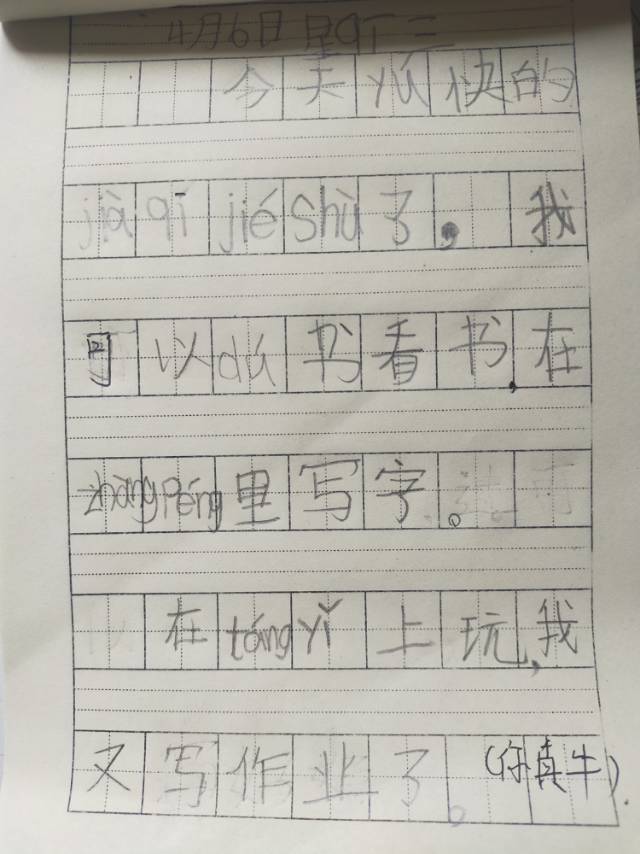 4月6日星qī三
今天yú快的
jià qī jié shù了。我
可以dú书看书,在
zhàng péng里写字。
在tǎng yǐ上玩,我
又写作业了。(你真牛).